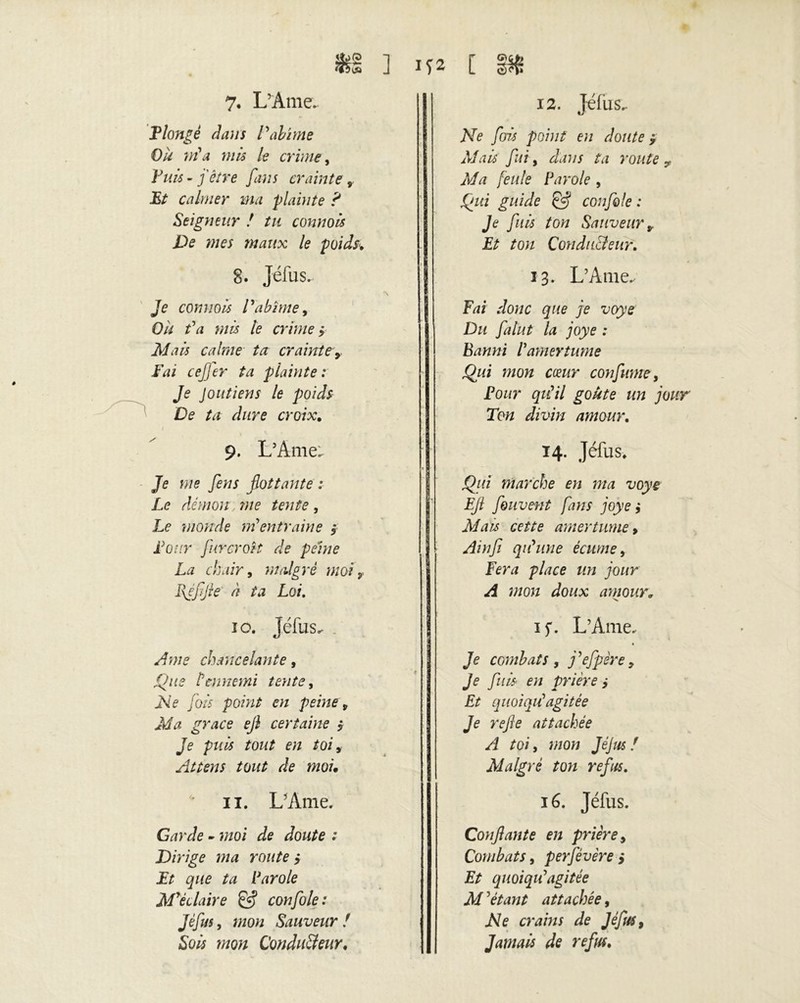 ] 152 [
7. L'Ame.
Plongé dans l'abime
Où m'a mis le crime,
Puis-j'être sans crainte,
Et calmer ma plainte?
Seigneur! tu connois
De mes maux le poids.
8. Jésus.
Je connois l'abîme,
Où t'a mis le crime;
Mais calme ta crainte,
Fai cesser ta plainte:
Je soutiens le poids
De ta dure croix.
9. L'Ame.
Je me sens flottante:
Le démon me tente,
Le monde m'entraine;
Pour surcroît de peine
La chair, malgré moi,
Résiste à ta Loi.
10. Jésus.
Ame chancelante,
Que l'ennemi tente,
Ne sois point en peine,
Ma grace est certaine;
Je puis tout en toi,
Attens tout de moi.
11. L'Ame.
Garde-moi de doute:
Dirige ma route;
Et que ta Parole
M'éclaire & console:
Jésus, mon Sauveur!
Sois mon Conducteur.
12. Jésus.
Ne sois point en doute;
Mais sui, dans ta route,
Ma seule Parole,
Qui guide & console:
Je suis ton Sauveur,
Et ton Conducteur.
13. L'Ame.
Fai donc que je voye
Du salut la joye:
Banni l'amertume
Qui mon cœur consume,
Pour qu'il goûte un jour
Ton divin amour.
14. Jésus.
Qui marche en ma voye
Est souvent sans joye;
Mais cette amertume,
Ainsi qu'une écume,
Fera place un jour
A mon doux amour.
15. L'Ame.
Je combats, j'espère,
Je suis en prière;
Et quoiqu'agitée
Je reste attachée
A toi, mon Jésus!
Malgré ton refus.
16. Jésus.
Constante en prière,
Combats, persévère;
Et quoiqu'agitée
M'étant attachée,
Ne crains de Jésus,
Jamais de refus.